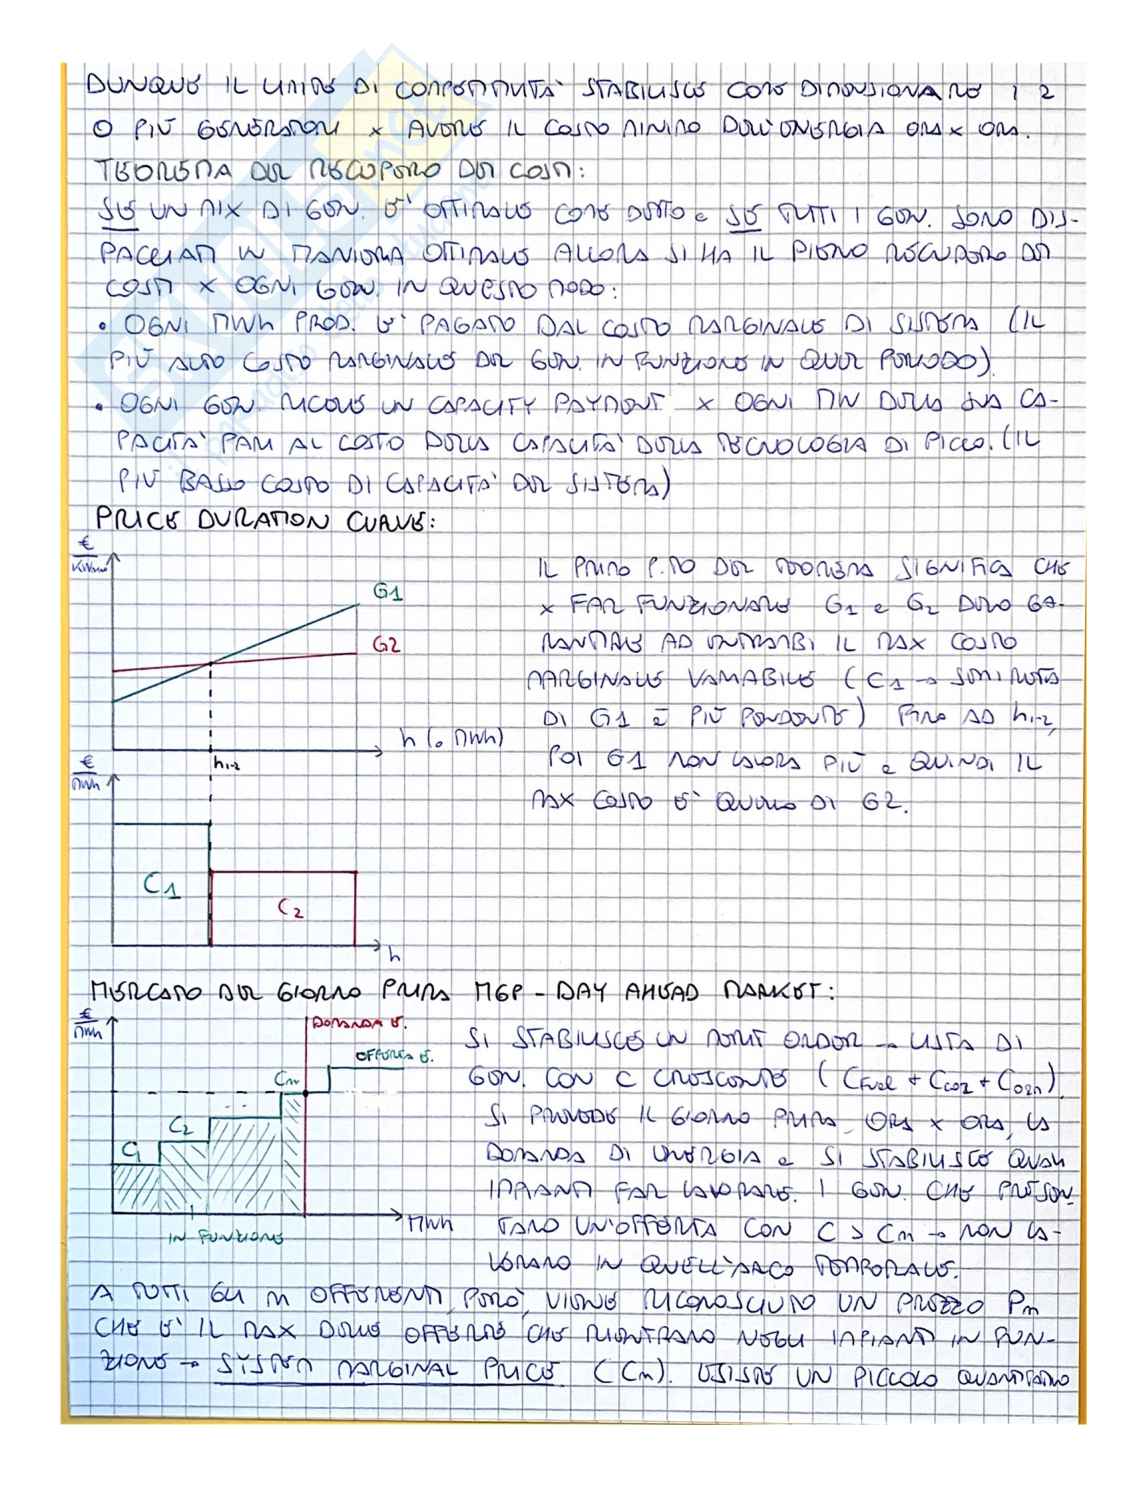 DUNQUE IL LIMITE DI COMPETITIVITÀ STABILISCE COME DIMENSIONARE I 2
O PIÙ GENERATORI x AVERE IL COSTO MINIMO DELL'ENERGIA ORA x ORA.
TEOREMA DEL RECUPERO DEI COSTI:
SE UN MIX DI GEN. E' OTTIMALE COME DETTO e SE TUTTI I GEN. SONO DIS-
PACCIATI IN MANIERA OTTIMALE ALLORA SI HA IL PIENO RECUPERO DEI
COSTI x OGNI GEN. IN QUESTO MODO:
• OGNI MWh PROD. E' PAGATO DAL COSTO MARGINALE DI SISTEMA (IL
PIÙ ALTO COSTO MARGINALE DEL GEN. IN FUNZIONE IN QUEL PERIODO)
• OGNI GEN. RICEVE UN CAPACITY PAYMENT x OGNI MW DELLA SUA CA-
PACITA' PARI AL COSTO DELLA CAPACITA' DELLA TECNOLOGIA DI PICCO. (IL
PIÙ BASSO COSTO DI CAPACITA' DEL SISTEMA)
PRICE DURATION CURVE:
€
G1
G2
h (o MWh)
h1-2
IL PRIMO P.TO DEL TEOREMA SIGNIFICA CHE
x FAR FUNZIONARE G1 e G2 DEVO GA-
RANTIRE AD ENTRAMBI IL MAX COSTO
MARGINALE VARIABILE (C1 → SEMIRETTA
DI G1 È PIÙ PENDENTE) FINO AD h1-2,
POI G1 NON LAVORA PIÙ e QUINDI IL
MAX COSTO E' QUELLO DI G2.
€/MWh
C1
C2
h
MERCATO DEL GIORNO PRIMA MGP - DAY AHEAD MARKET:
€/MWh
DOMANDA E.
OFFERTA E.
Cm
C2
C1
MWh
IN FUNZIONE
SI STABILISCE UN MERIT ORDER → LISTA DI
GEN. CON C CRESCENTE (Cfuel + Cco2 + CO&M)
SI PREVEDE IL GIORNO PRIMA, ORA x ORA, LA
DOMANDA DI ENERGIA e SI STABILISCE QUALI
IMPIANTI FAR LAVORARE. I GEN. CHE PRESEN-
TANO UN'OFFERTA CON C > Cm → NON LA-
VORANO IN QUELL'ARCO TEMPORALE.
A TUTTI GLI m OFFERENTI, PERÒ, VIENE RICONOSCIUTO UN PREZZO Pm
CHE E' IL MAX DELLE OFFERTE CHE RIENTRANO NEGLI IMPIANTI IN FUN-
ZIONE → SYSTEM MARGINAL PRICE (Cm). ESISTE UN PICCOLO QUANTITATIVO